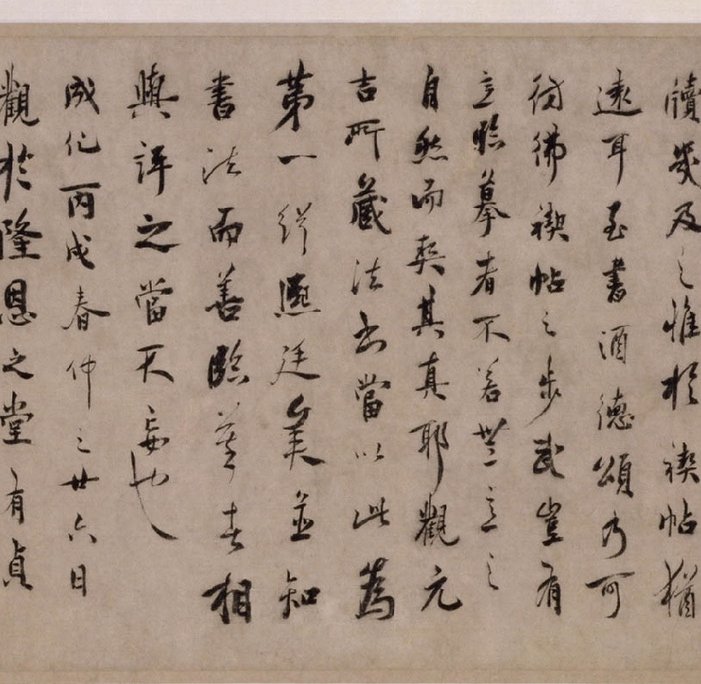 牘幾及之惟於禊帖猶
遠耳至書酒德頌乃可
彷彿禊帖之步武豈有
意臨摹者不若無意之
自然而契其真耶觀元
吉所藏法書當以此為
第一緝熙廷美並知
書法而善臨摹者相
與評之當不妄也
成化丙戌春仲之廿六日
觀於隆恩之堂有貞